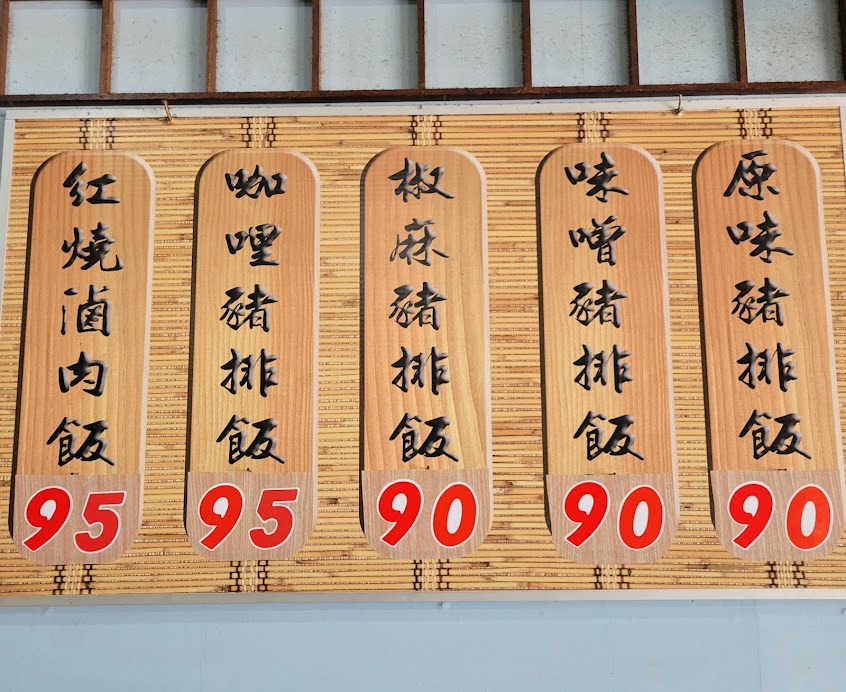 原味豬排飯
90
味噌豬排飯
90
椒麻豬排飯
90
咖哩豬排飯
95
紅燒滷肉飯
95